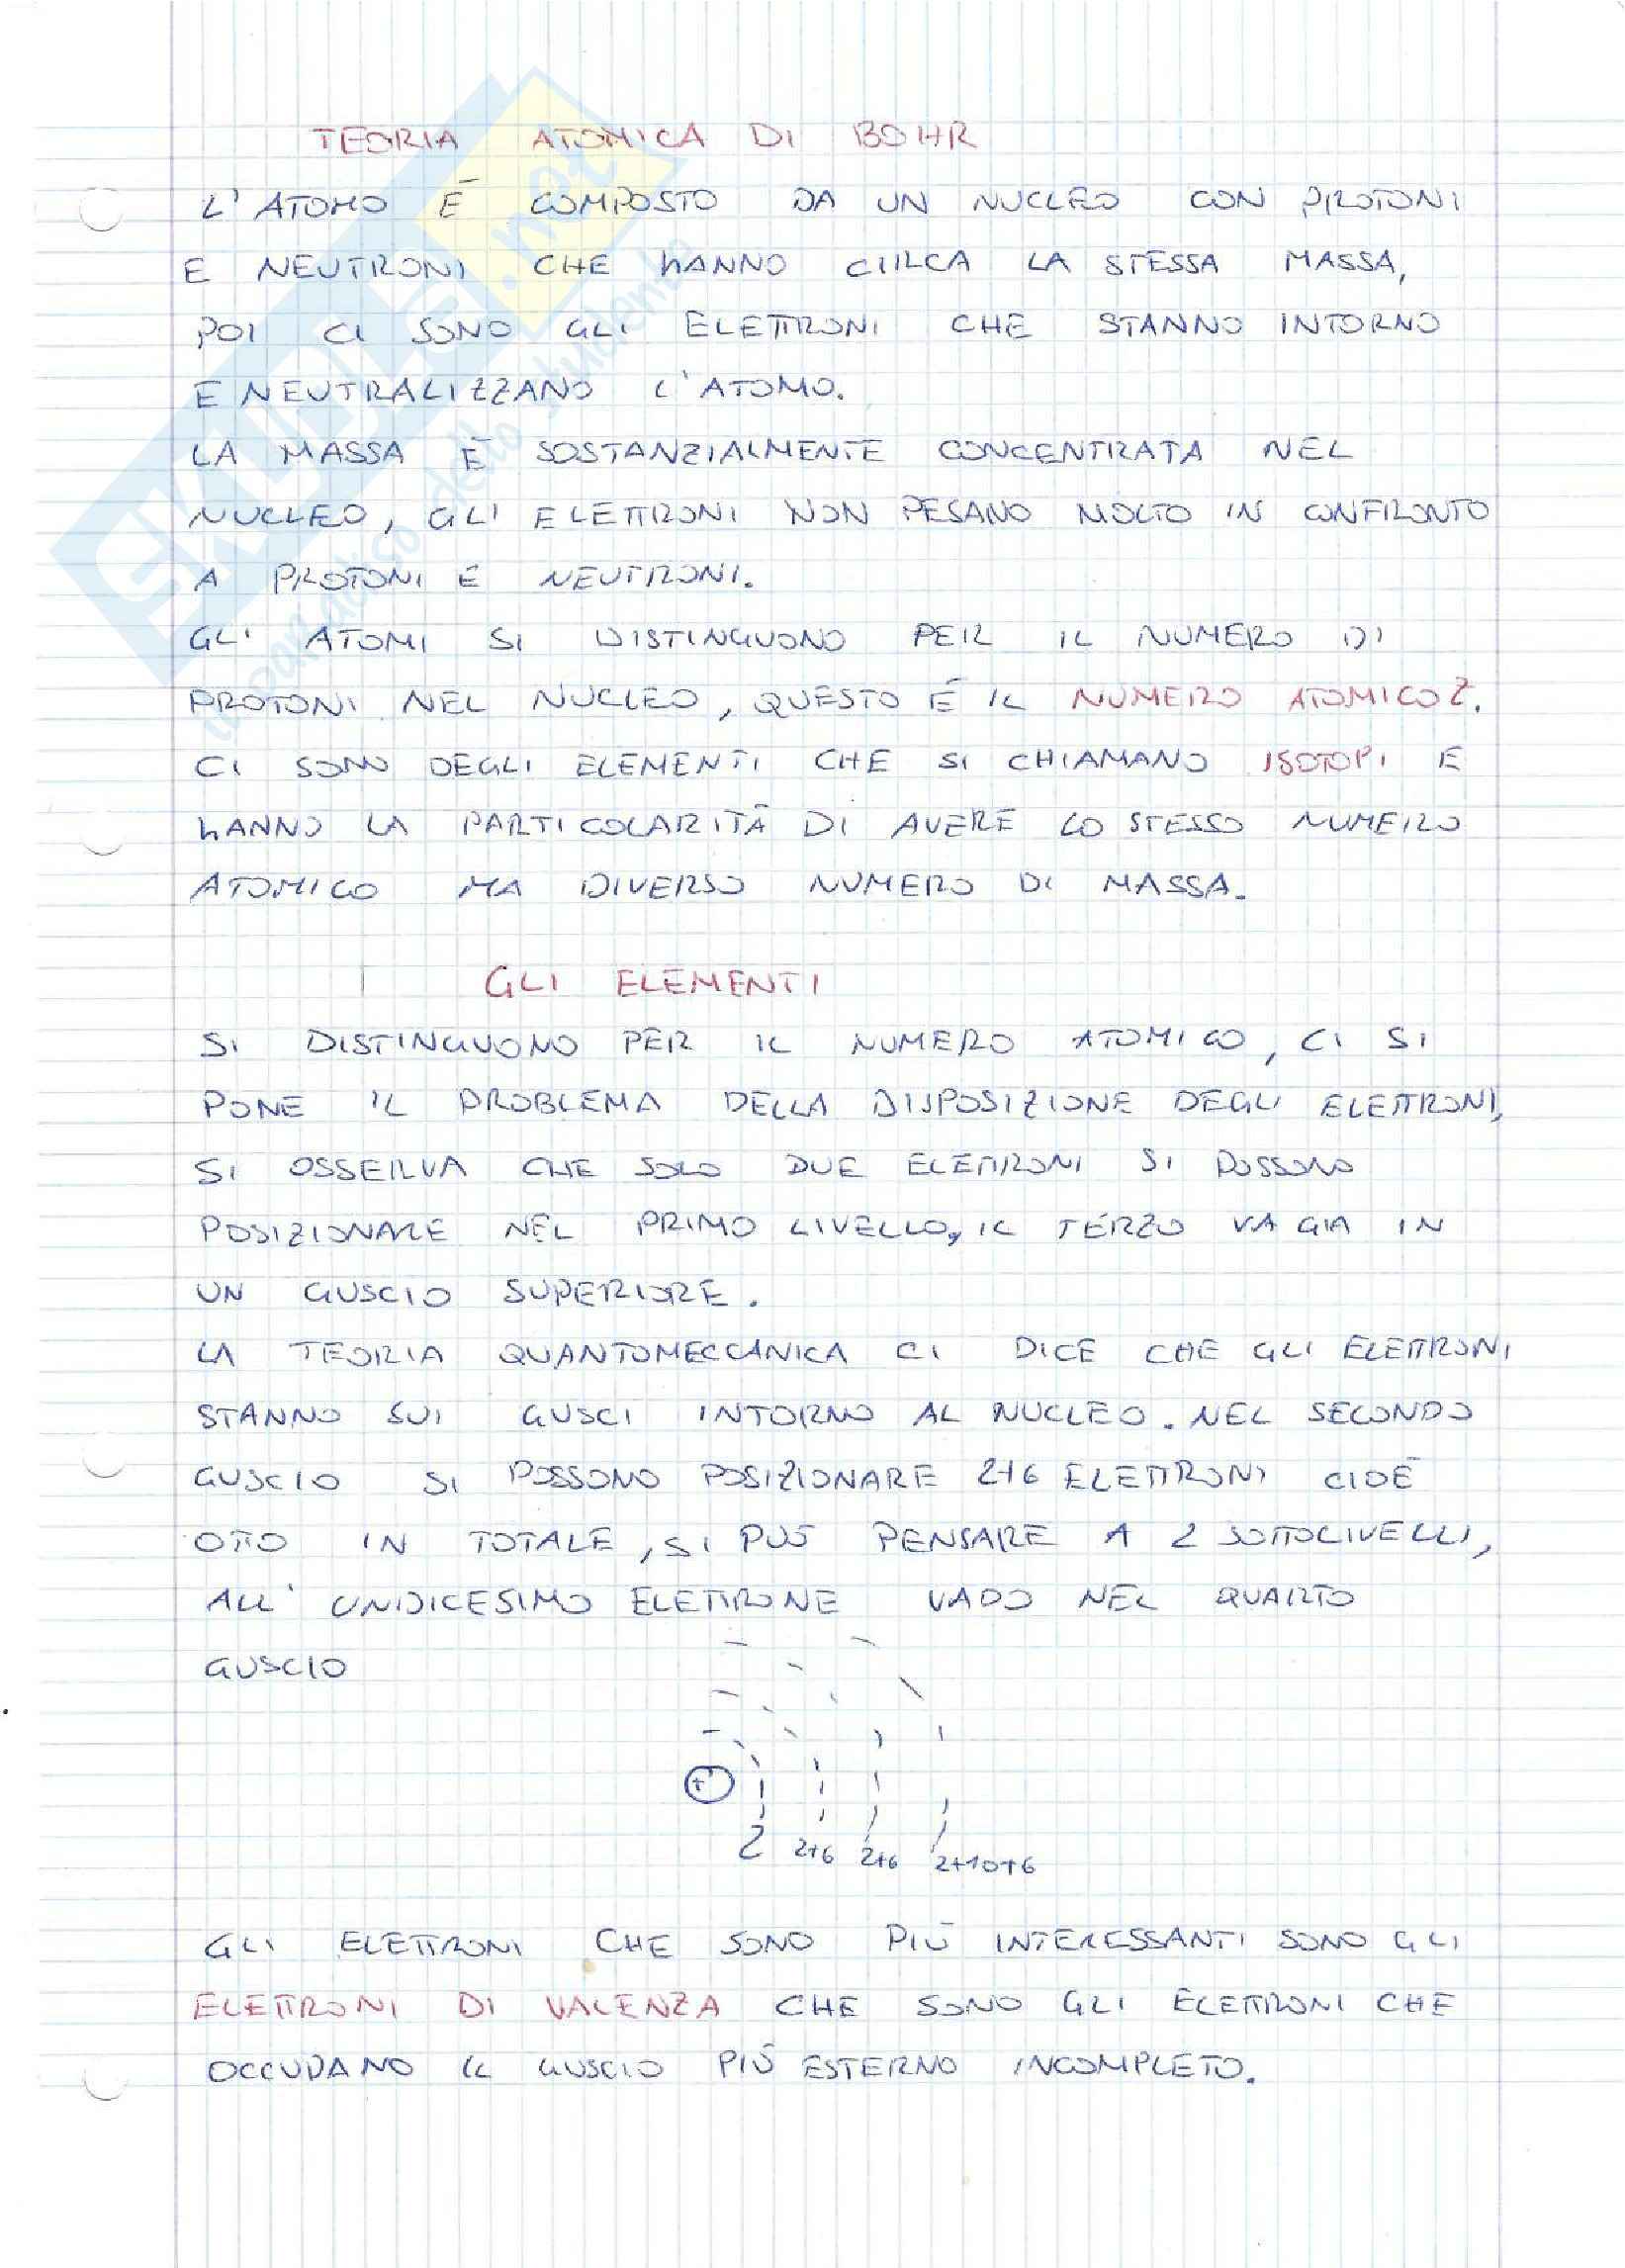 TEORIA ATOMICA DI BOHR
L'ATOMO È COMPOSTO DA UN NUCLEO CON PROTONI
E NEUTRONI CHE HANNO CIRCA LA STESSA MASSA,
POI CI SONO GLI ELETTRONI CHE STANNO INTORNO
E NEUTRALIZZANO L'ATOMO.
LA MASSA È SOSTANZIALMENTE CONCENTRATA NEL
NUCLEO, GLI ELETTRONI NON PESANO MOLTO IN CONFRONTO
A PROTONI E NEUTRONI.
GLI ATOMI SI DISTINGUONO PER IL NUMERO DI
PROTONI NEL NUCLEO, QUESTO È IL NUMERO ATOMICO Z.
CI SONO DEGLI ELEMENTI CHE SI CHIAMANO ISOTOPI E
HANNO LA PARTICOLARITÀ DI AVERE LO STESSO NUMERO
ATOMICO MA DIVERSO NUMERO DI MASSA.
GLI ELEMENTI
SI DISTINGUONO PER IL NUMERO ATOMICO, CI SI
PONE IL PROBLEMA DELLA DISPOSIZIONE DEGLI ELETTRONI,
SI OSSERVA CHE SOLO DUE ELETTRONI SI POSSONO
POSIZIONARE NEL PRIMO LIVELLO, IL TERZO VA GIA IN
UN GUSCIO SUPERIORE.
LA TEORIA QUANTOMECCANICA CI DICE CHE GLI ELETTRONI
STANNO SUI GUSCI INTORNO AL NUCLEO. NEL SECONDO
GUSCIO SI POSSONO POSIZIONARE 2+6 ELETTRONI CIOÈ
OTTO IN TOTALE, SI PUÒ PENSARE A 2 SOTTOLIVELLI,
ALL'UNDICESIMO ELETTRONE VADO NEL QUARTO
GUSCIO
+
2 2+6 2+6 2+10+6
GLI ELETTRONI CHE SONO PIÙ INTERESSANTI SONO GLI
ELETTRONI DI VALENZA CHE SONO GLI ELETTRONI CHE
OCCUPANO IL GUSCIO PIÙ ESTERNO INCOMPLETO.
SKUOLA.net
il paradiso dello studente